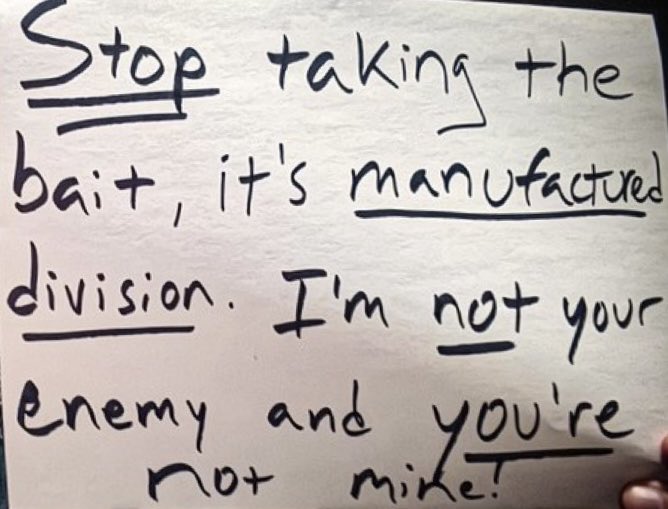 Stop taking the
bait, it's manufactured
division. I'm not your
enemy and you're
not mine!